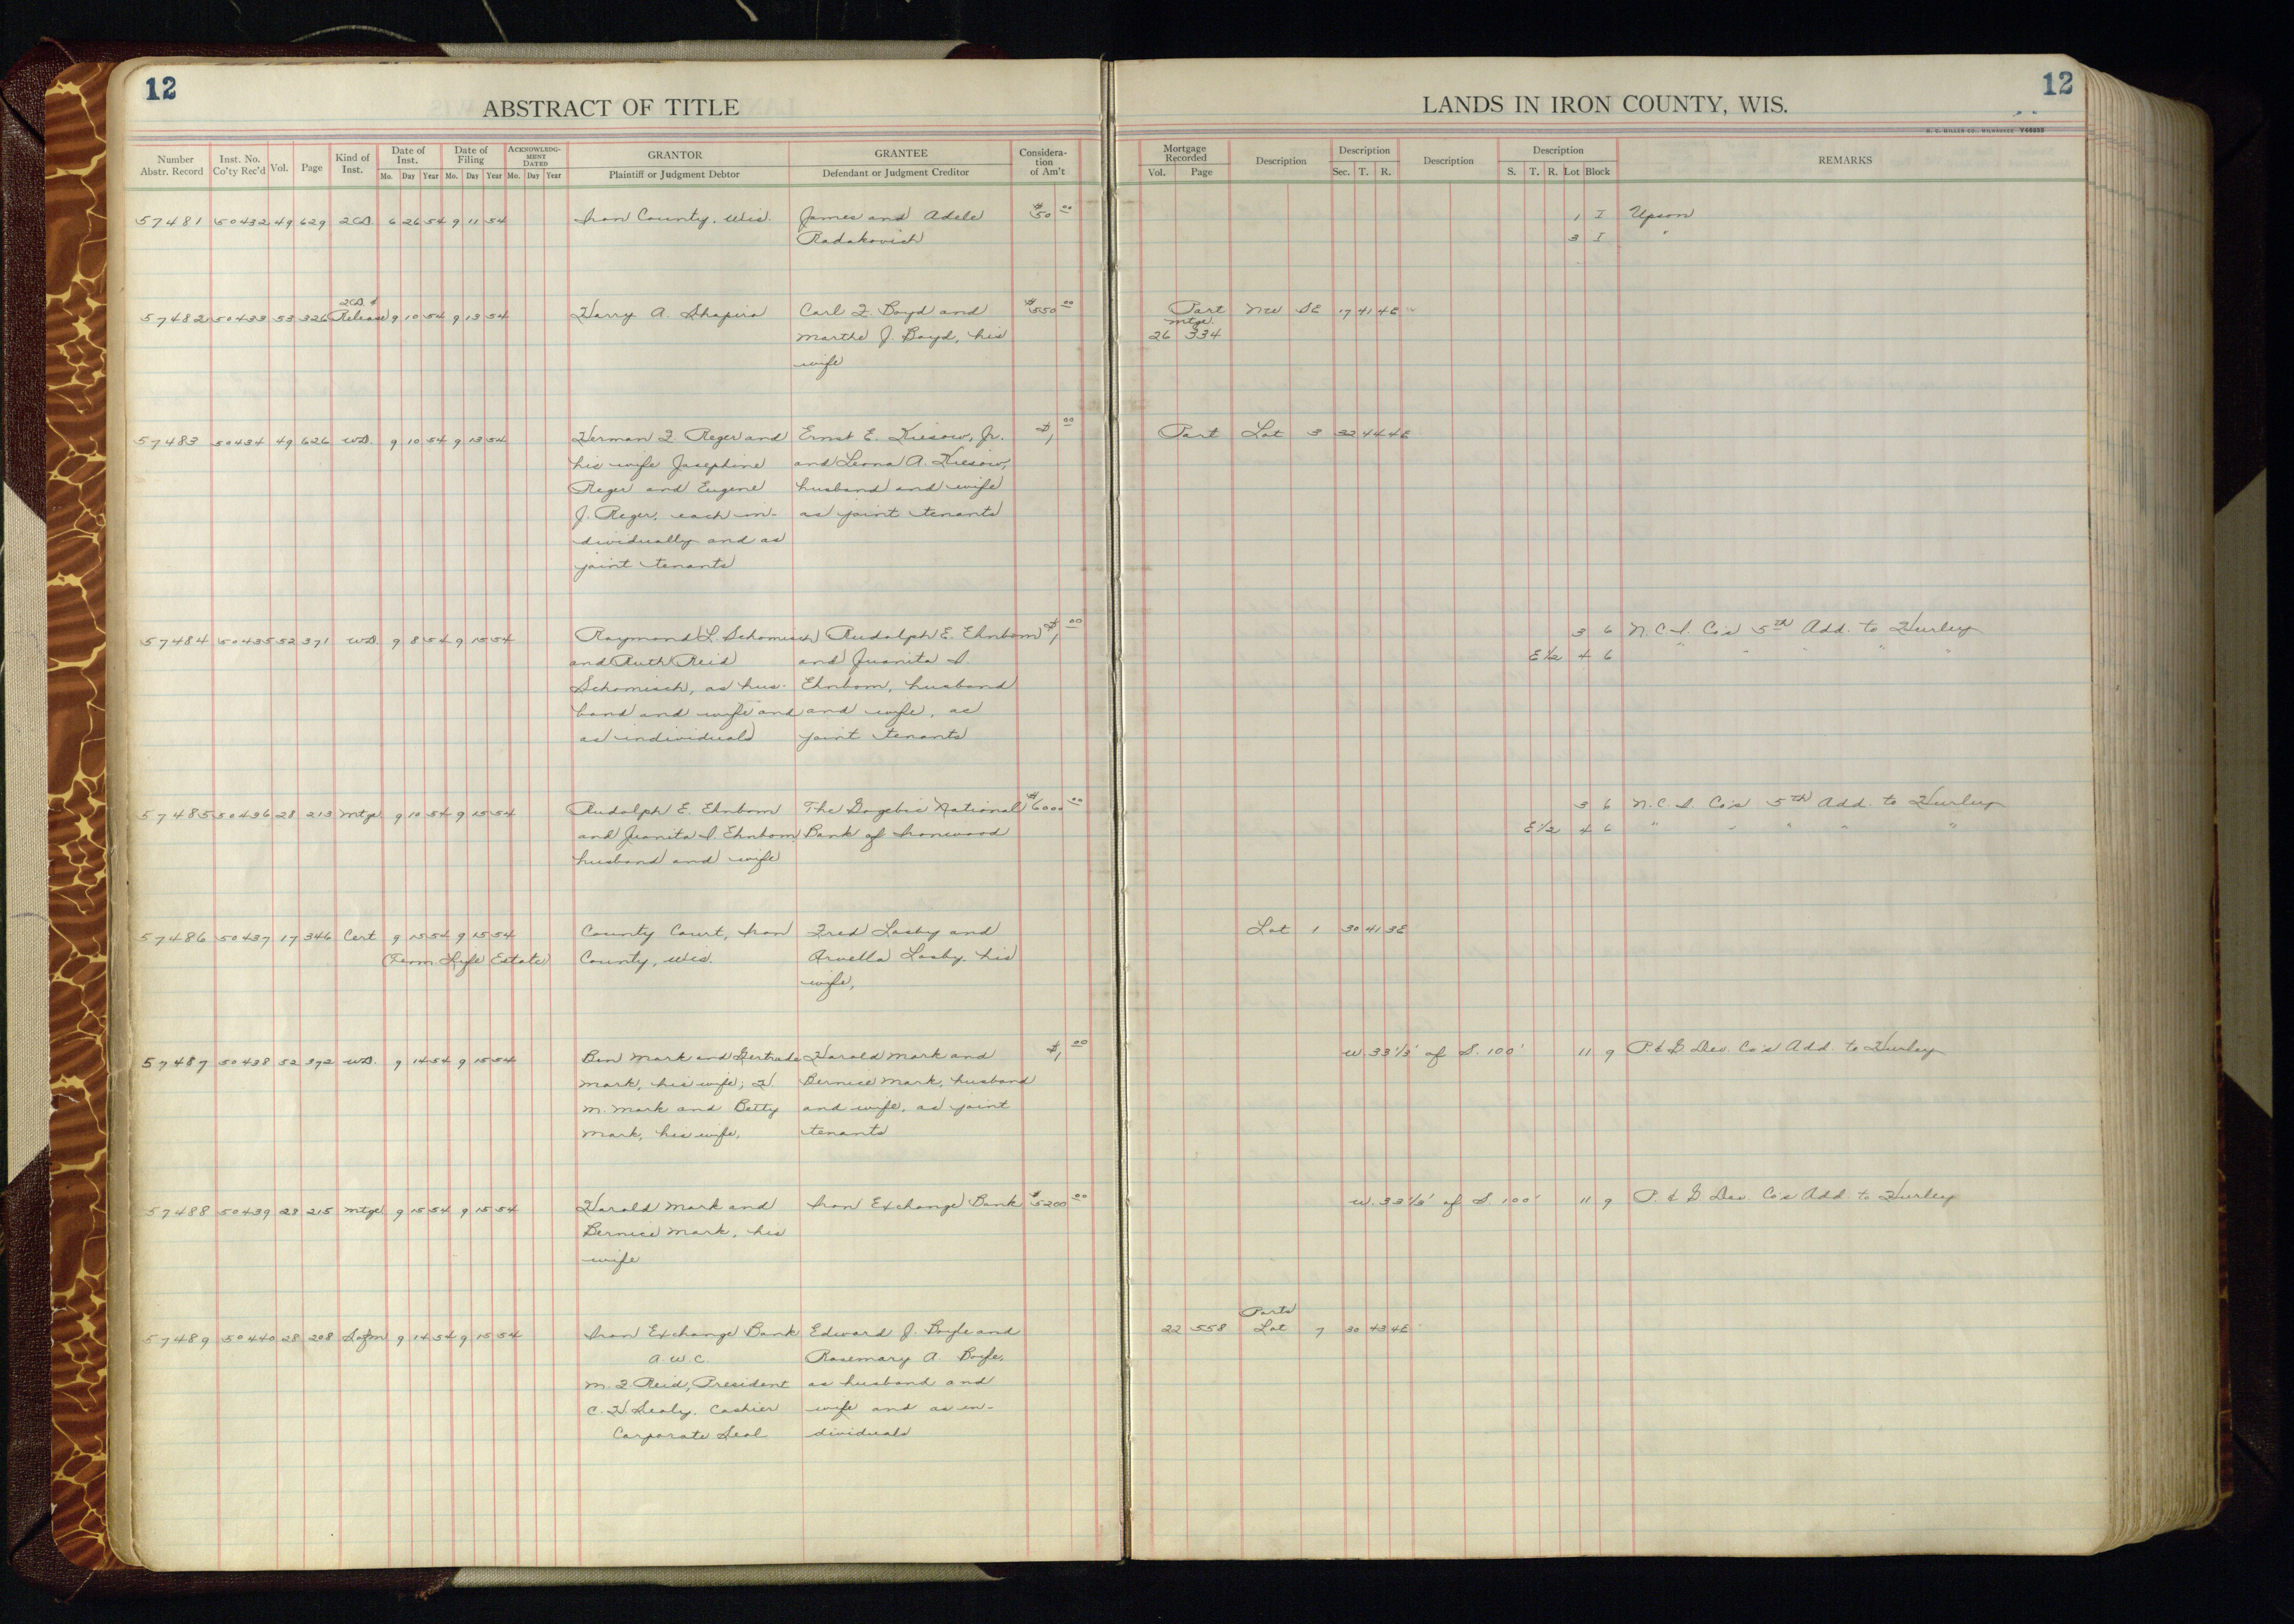 12
ABSTRACT OF TITLE
LANDS IN IRON COUNTY, WIS.
12
H. C. MILLER CO., MILWAUKEE Y44855
Number Abstr. Record | Inst. No. Co'ty Rec'd | Vol. | Page | Kind of Inst. | Date of Inst. Mo. Day Year | Date of Filing Mo. Day Year | ACKNOWLEDGMENT DATED Mo. Day Year | GRANTOR Plaintiff or Judgment Debtor | GRANTEE Defendant or Judgment Creditor | Consideration of Am't | Mortgage Recorded Vol. Page | Description | Description Sec. T. R. | Description | Description S. T. R. Lot Block | REMARKS
57481 50432 49 629 2CD. 6 26 54 9 11 54 Iron County, Wis. James and Adele $50 00 1 I Upson
Radakovich 3 I "
2CD. &
57482 50433 53 326 Release 9 10 54 9 13 54 Harry A. Shapiro Carl F. Boyd and $550 00 Part NW SE 17 41 4E
Marthe J. Boyd, his Mtge. 26 334
wife
57483 50434 49 626 WD. 9 10 54 9 13 54 Herman F. Reger and Ernst E. Kiesow, Jr. $1, 00 Part Lot 3 32 44 4E
his wife Josephine and Leona A. Kiesow,
Reger and Eugene husband and wife
J. Reger, each in- as joint tenants
dividually and as
joint tenants
57484 50435 52 371 WD. 9 8 54 9 15 54 Raymond L. Schomisch Rudolph E. Ehnbom $1, 00 3 6 N. C. I. Co's 5th Add. to Hurley
and Ruth Reid and Juanita I. E 1/2 4 6 " " " " "
Schomisch, as hus- Ehnbom, husband
band and wife and and wife, as
as individuals joint tenants
57485 50436 28 213 Mtge 9 10 54 9 15 54 Rudolph E. Ehnbom The Gogebic National $6000 00 3 6 N. C. I. Co's 5th Add. to Hurley
and Juanita I. Ehnbom, Bank of Ironwood E 1/2 4 6 " " " " "
husband and wife
57486 50437 17 346 Cert 9 15 54 9 15 54 County Court, Iron Fred Lasby and Lot 1 30 41 3E
(Term. Life Estate) County, Wis. Orvella Lasby, his
wife,
57487 50438 52 372 WD. 9 14 54 9 15 54 Ben Mark and Gertrude Harold Mark and $1, 00 W. 33 1/3' of S. 100' 11 9 P. & G Dev. Co's Add. to Hurley
Mark, his wife; H. Bernice Mark, husband
M. Mark and Betty and wife, as joint
Mark, his wife, tenants
57488 50439 28 215 Mtge 9 15 54 9 15 54 Harold Mark and Iron Exchange Bank $5200 00 W. 33 1/3' of S. 100' 11 9 P. & G Dev. Co's Add. to Hurley
Bernice Mark, his
wife
Parts
57489 50440 28 208 Sofm 9 14 54 9 15 54 Iron Exchange Bank Edward J. Boyle and 22 558 Lot 7 30 43 4E
A. W. C. Rosemary A. Boyle,
M. F Reid, President as husband and
C. H Sealy, Cashier wife and as in-
Corporate Seal dividuals